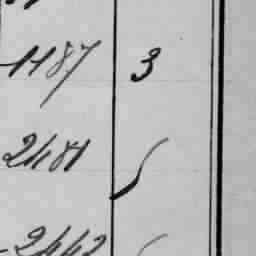 1187 3
2481
2442